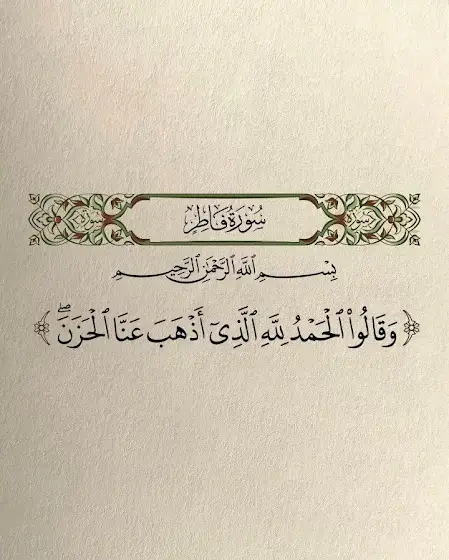 سُورَةُ فَاطِرٍ
بِسْمِ ٱللَّهِ ٱلرَّحْمَٰنِ ٱلرَّحِيمِ
وَقَالُوا۟ ٱلْحَمْدُ لِلَّهِ ٱلَّذِىٓ أَذْهَبَ عَنَّا ٱلْحَزَنَ ۖ